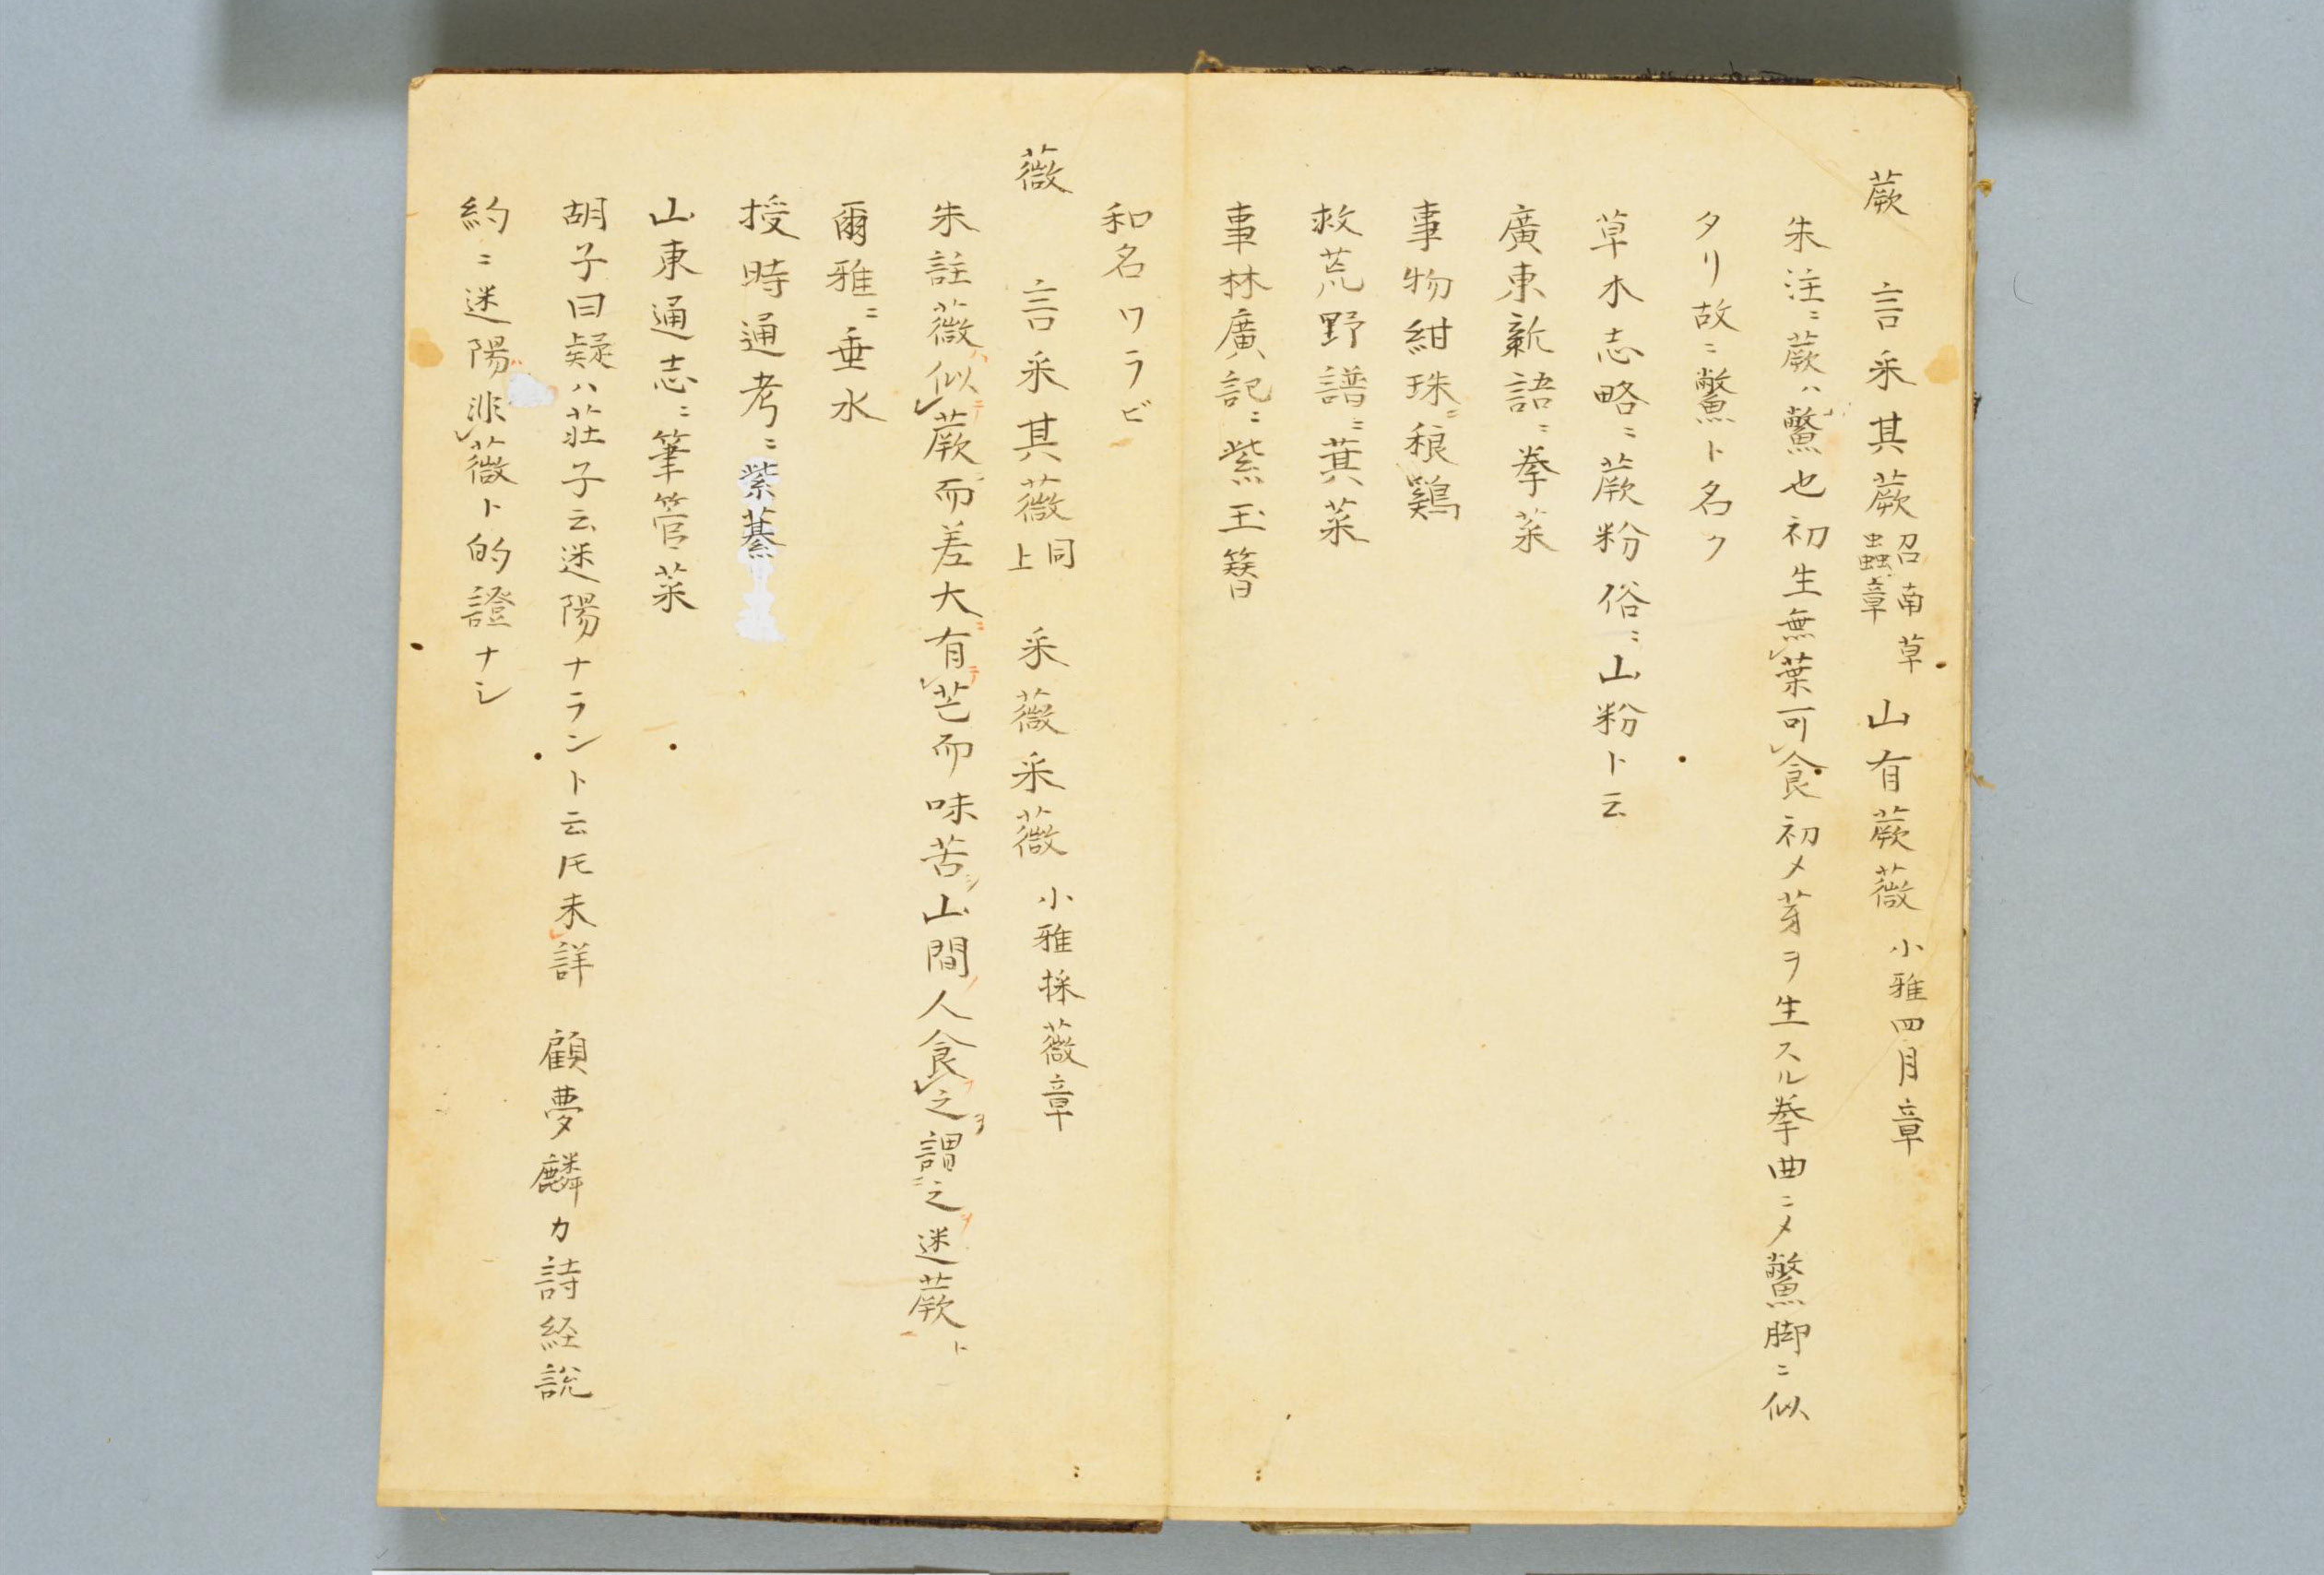 蕨　言采其蕨召南草蟲章　山有蕨薇小雅四月章
朱注ニ蕨ハ鼈也初生無葉可食初メ芽ヲ生スル拳曲ニメ鼈脚ニ似
タリ故ニ鼈ト名ク
草木志略ニ蕨粉俗ニ山粉ト云
廣東新語ニ拳菜
事物紺珠ニ稂鷄
救荒野譜ニ萁菜
事林廣記ニ紫玉簪
和名ワラビ
薇　言采其薇同上　采薇采薇小雅採薇章
朱註薇ハ似テ蕨ニ而差大ニ有テ芒而味苦シ山間ノ人食フ之ヲ謂ニ之ヲ迷蕨ト
爾雅ニ垂水
授時通考ニ紫蓁
山東通志ニ筆管菜
胡子曰疑ハ荘子云迷陽ナラント云𪜈未詳　顧夢麟カ詩経説
約ニ迷陽非薇ト的證ナシ